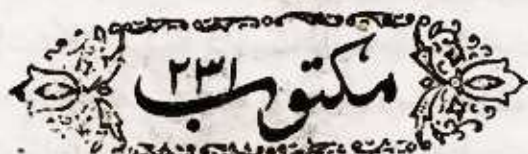 مکتوب ۲۳۱